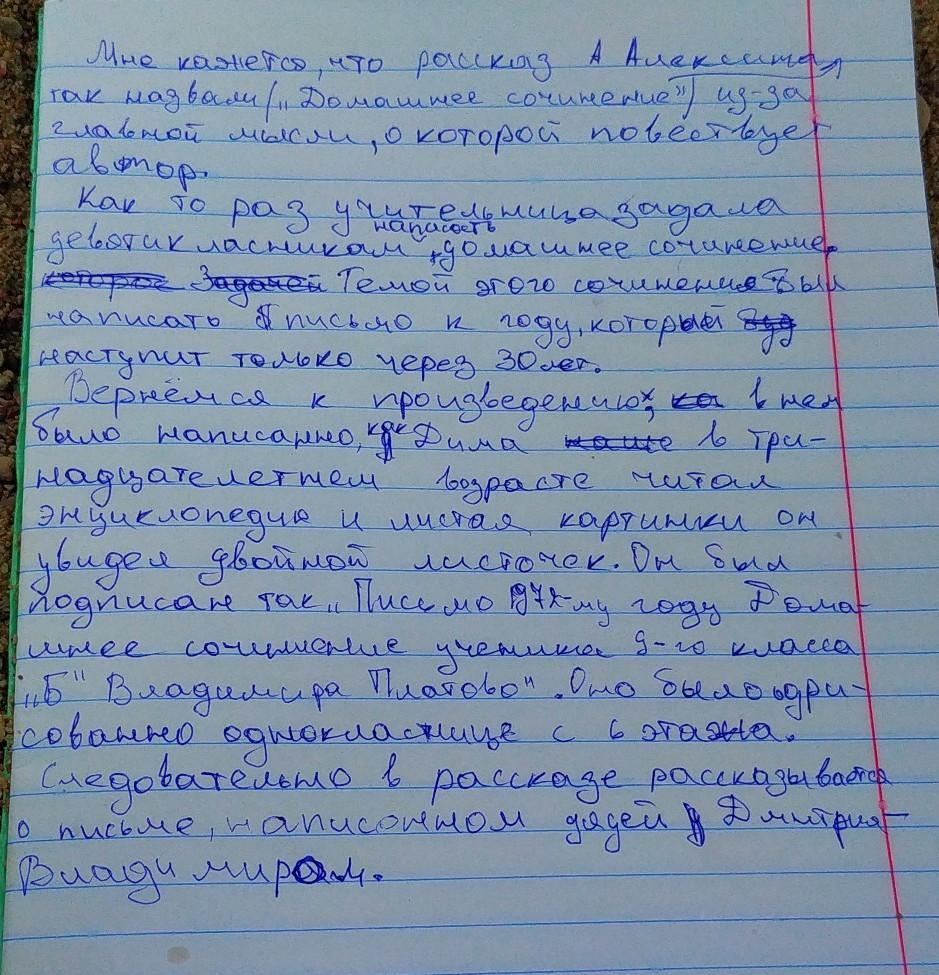 Мне кажется, что рассказ А Алексина
так назвали („Домашнее сочинение") из-за
главной мысли, о которой повествует
автор.
Как то раз учительница задала
написать
девятикласникам домашнее сочинение.
которое Задачей Темой этого сочинение был
написать письмо к году, который буд
наступит только через 30 лет.
Вернёмся к произведению, ка в нем
было написанно, как Дима наше в три-
надцателетнем возрасте читал
энциклопедию и листая картинки он
увидел двойной листочек. Он был
подписан так „Письмо 197 -му году Дома-
шнее сочинение ученика 9-го класса
„Б" Владимира Платово". Оно было адри-
сованно однокласнице с 6 этажа.
Следовательно в рассказе рассказывается
о письме, написонном дядей Дмитрия-
Владимиром.